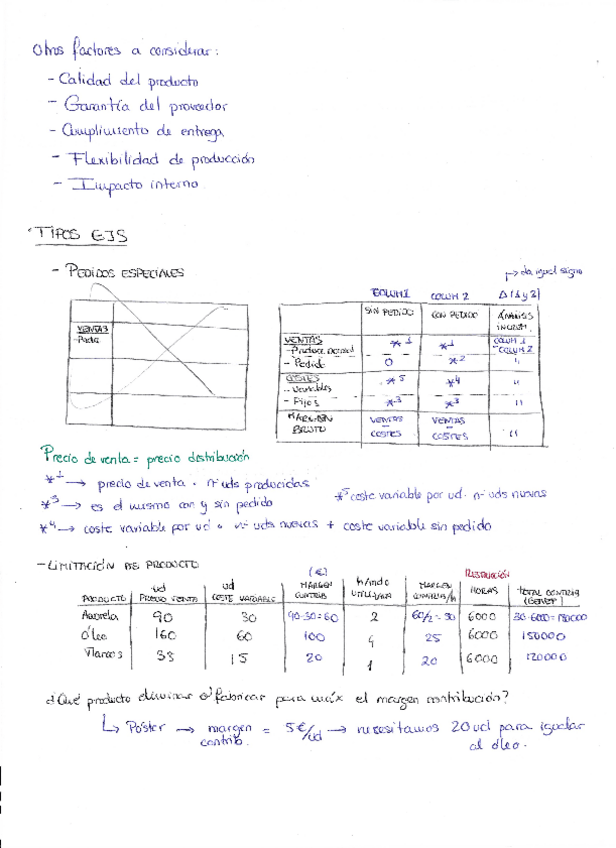 Otros factores a considerar:
- Calidad del producto
- Garantía del proveedor
- Cumplimiento de entrega
- Flexibilidad de producción
- Impacto interno
TIPOS EJS
- PEDIDOS ESPECIALES
→ da igual signo
VENTAS
COLUM 1 COLUM 2 Δ (1 y 2)
SIN PEDIDO CON PEDIDO ANÁLISIS INCREM.
VENTAS
- Pedido 0 *2 "
COSTES
- Variables *5 *4 "
- Fijos *3 *3 "
MARGEN BRUTO VENTAS - COSTES VENTAS - COSTES "
Precio de venta = precio distribución
*1 → precio de venta · nº uds producidas
*3 → es el mismo con y sin pedido
*5 coste variable por ud · nº uds nuevas
*4 → coste variable por ud · nº uds nuevas + coste variable sin pedido
- LIMITACIÓN DE PRODUCTO
(€) RESTRICCIÓN
PRODUCTO ud PRECIO VENTA ud COSTE VARIABLE MARGEN CONTRIB h/mdo MARGEN HORAS TOTAL CONTRIB
90 30 90-30=60 2 60/2=30 6000 30·6000=180000
Óleo 160 60 100 4 25 6000 150000
Marcos 15 20 1 20 6000 120000
¿Qué producto eliminar o fabricar para máx el margen contribución?
↳ Póster → margen contrib. = 5€/ud → necesitamos 20 ud para igualar al óleo.